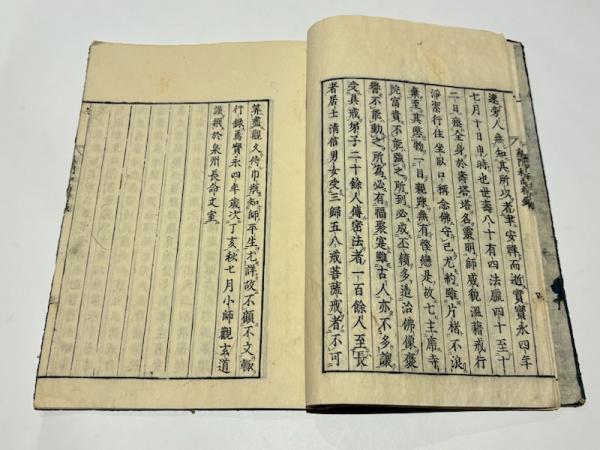 遽旁人無知其所以者聿安祥而逝實寶永四年
七月十日申時也世壽八十有四法臘四十至十
二日塟全身於壽塔塔名靈明師威貌溫藉戒行
淨潔行住坐臥口稱念佛守己尤約雖片楮不浪
棄至其惠物一目親疎無有慳戀是故七主席寺
詫富貴不能強之所到必成丕績多造治佛像褒
譽不能動之所為必有福聚寔雖古人亦不多讓
受具戒弟子二十餘人傳密法者一百餘人至長
者居士清信男女受三歸五八戒菩薩戒者不可
算盡觀久侍巾瓶知師平生尤詳故不顧不文輙
行錄焉寶永四年歲次丁亥秋七月小師觀玄道
謹撰於泉州長命文室